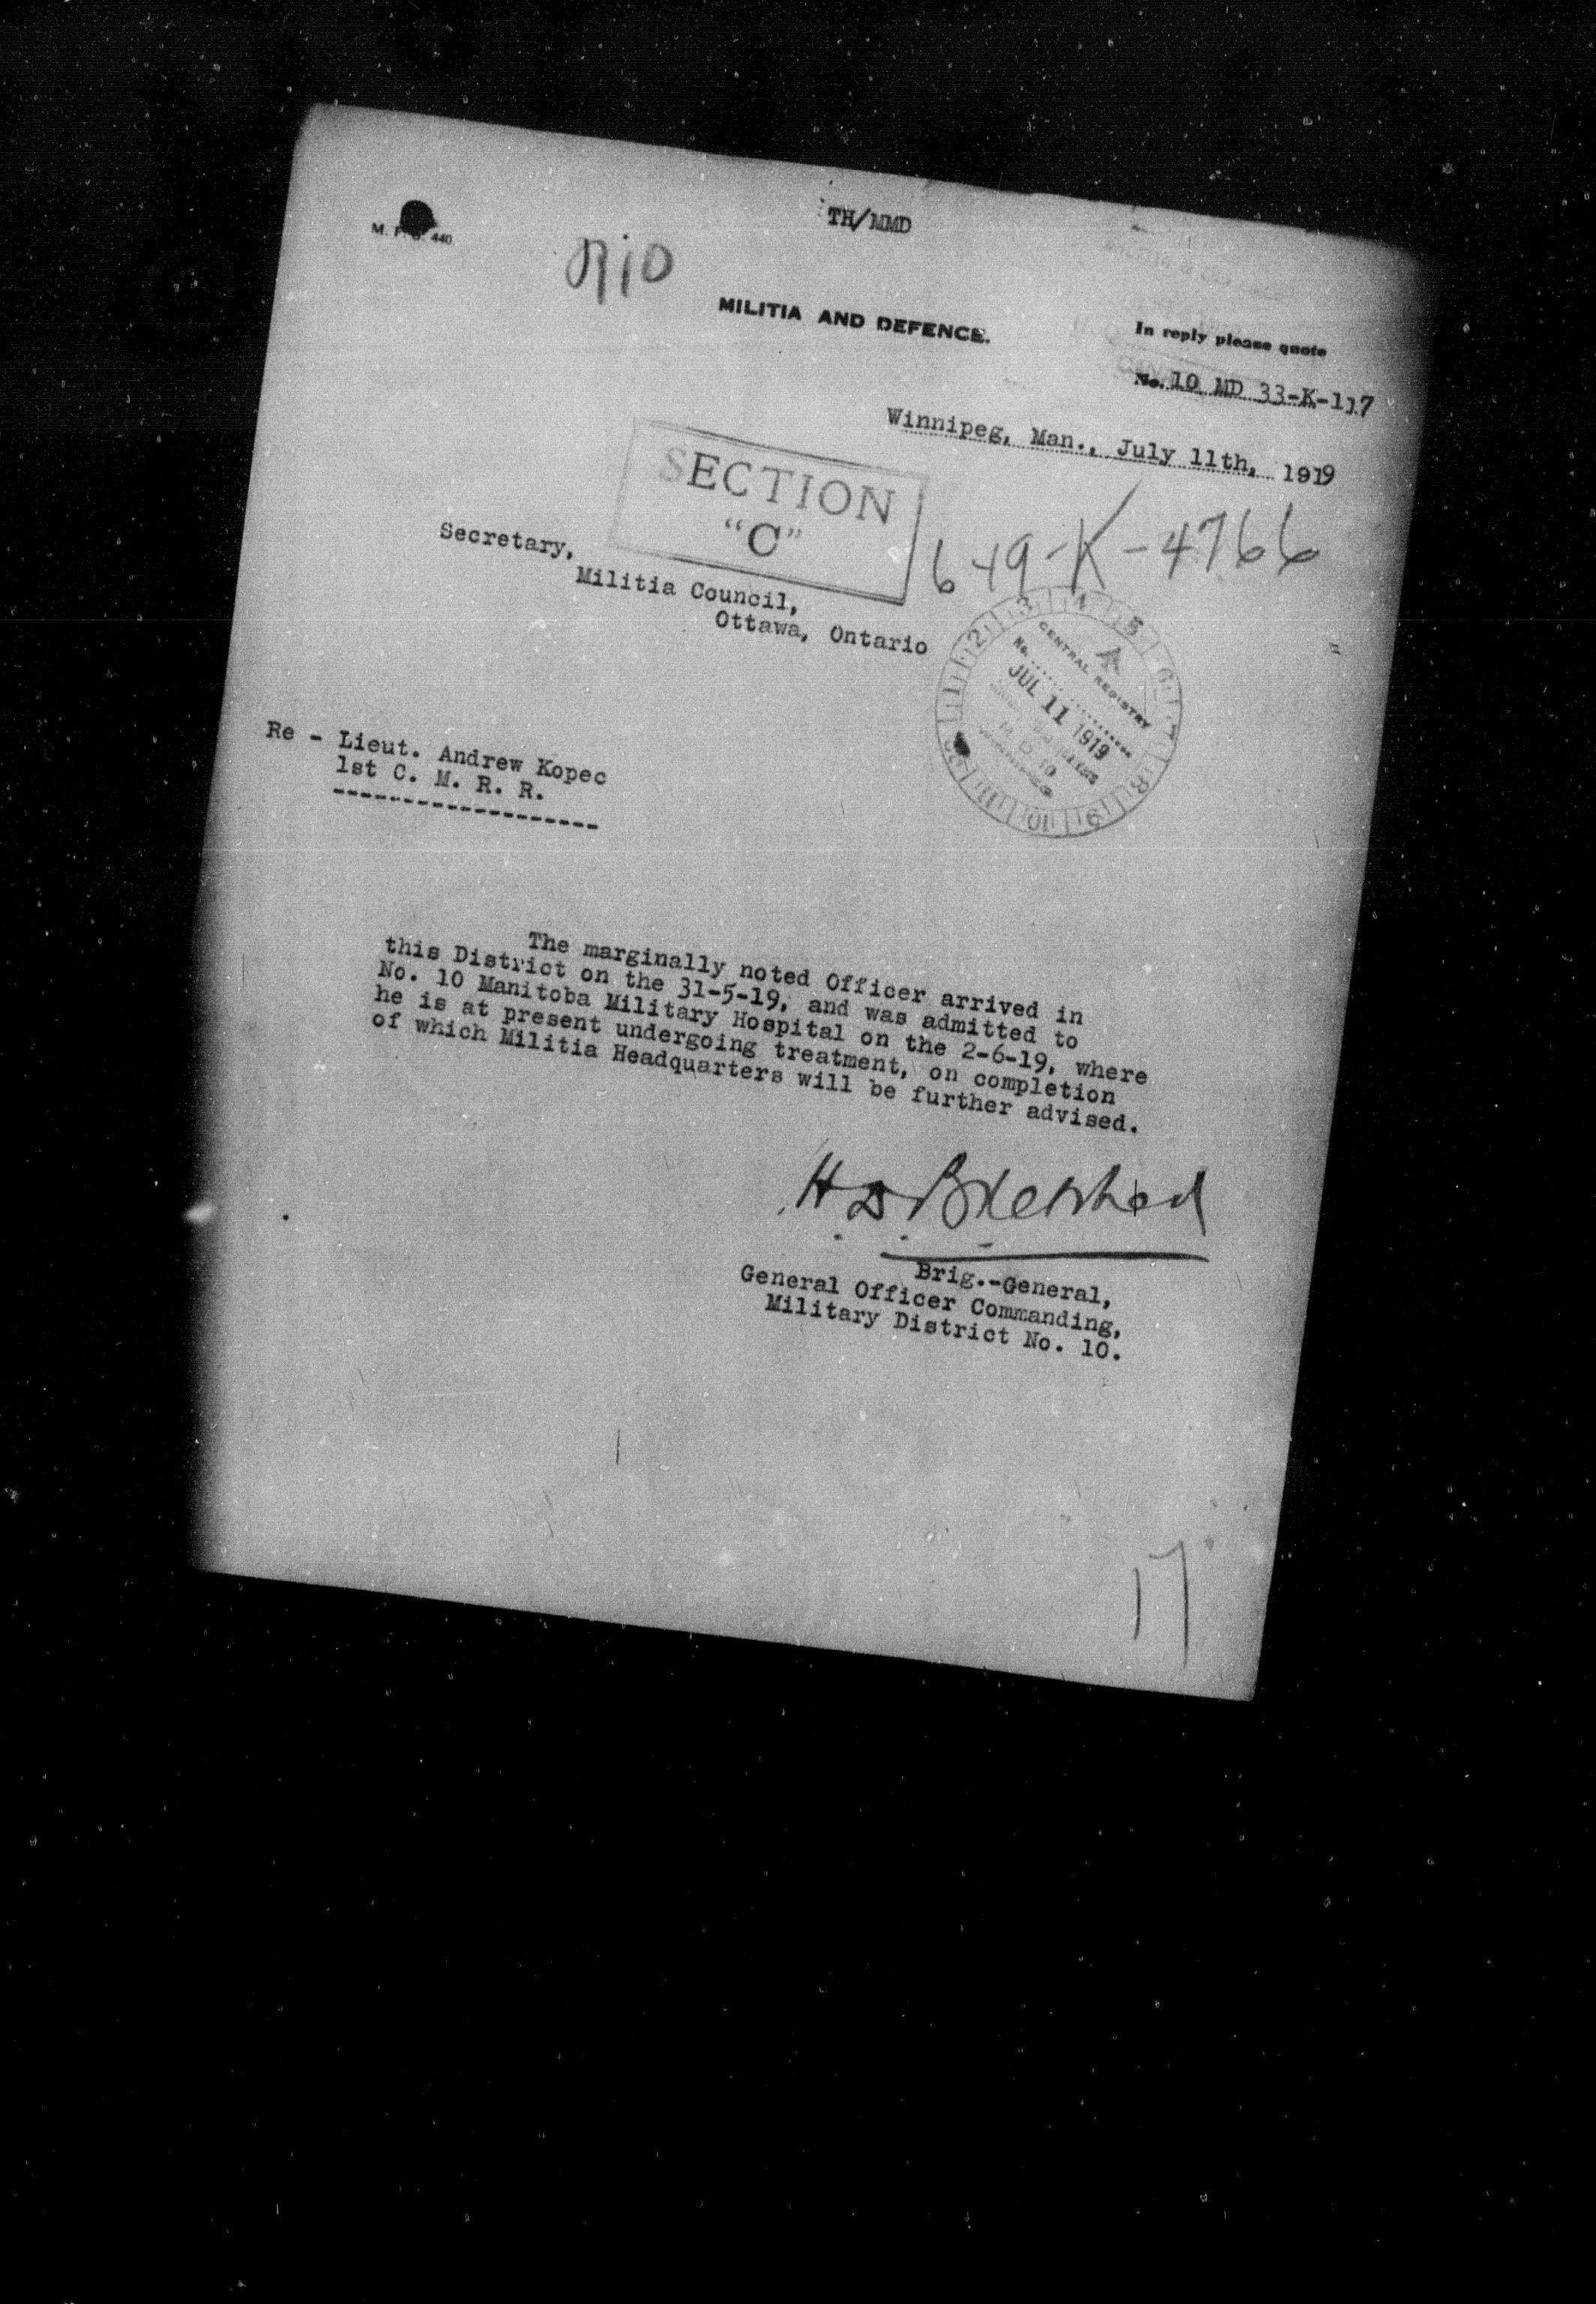 TH/MMD
M. F. B. 440
MILITIA AND DEFENCE.
In reply please quote
No. 10 MD 33-K-117
Winnipeg, Man., July 11th, 1919
SECTION
"C"
649-K-4766
Secretary,
Militia Council,
Ottawa, Ontario
CENTRAL REGISTRY
No.
JUL 11 1919
M. D. 10
Re - Lieut. Andrew Kopec
1st C. M. R. R.
The marginally noted Officer arrived in
this District on the 31-5-19, and was admitted to
No. 10 Manitoba Military Hospital on the 2-6-19, where
he is at present undergoing treatment, on completion
of which Militia Headquarters will be further advised.
Brig.-General,
General Officer Commanding,
Military District No. 10.
17